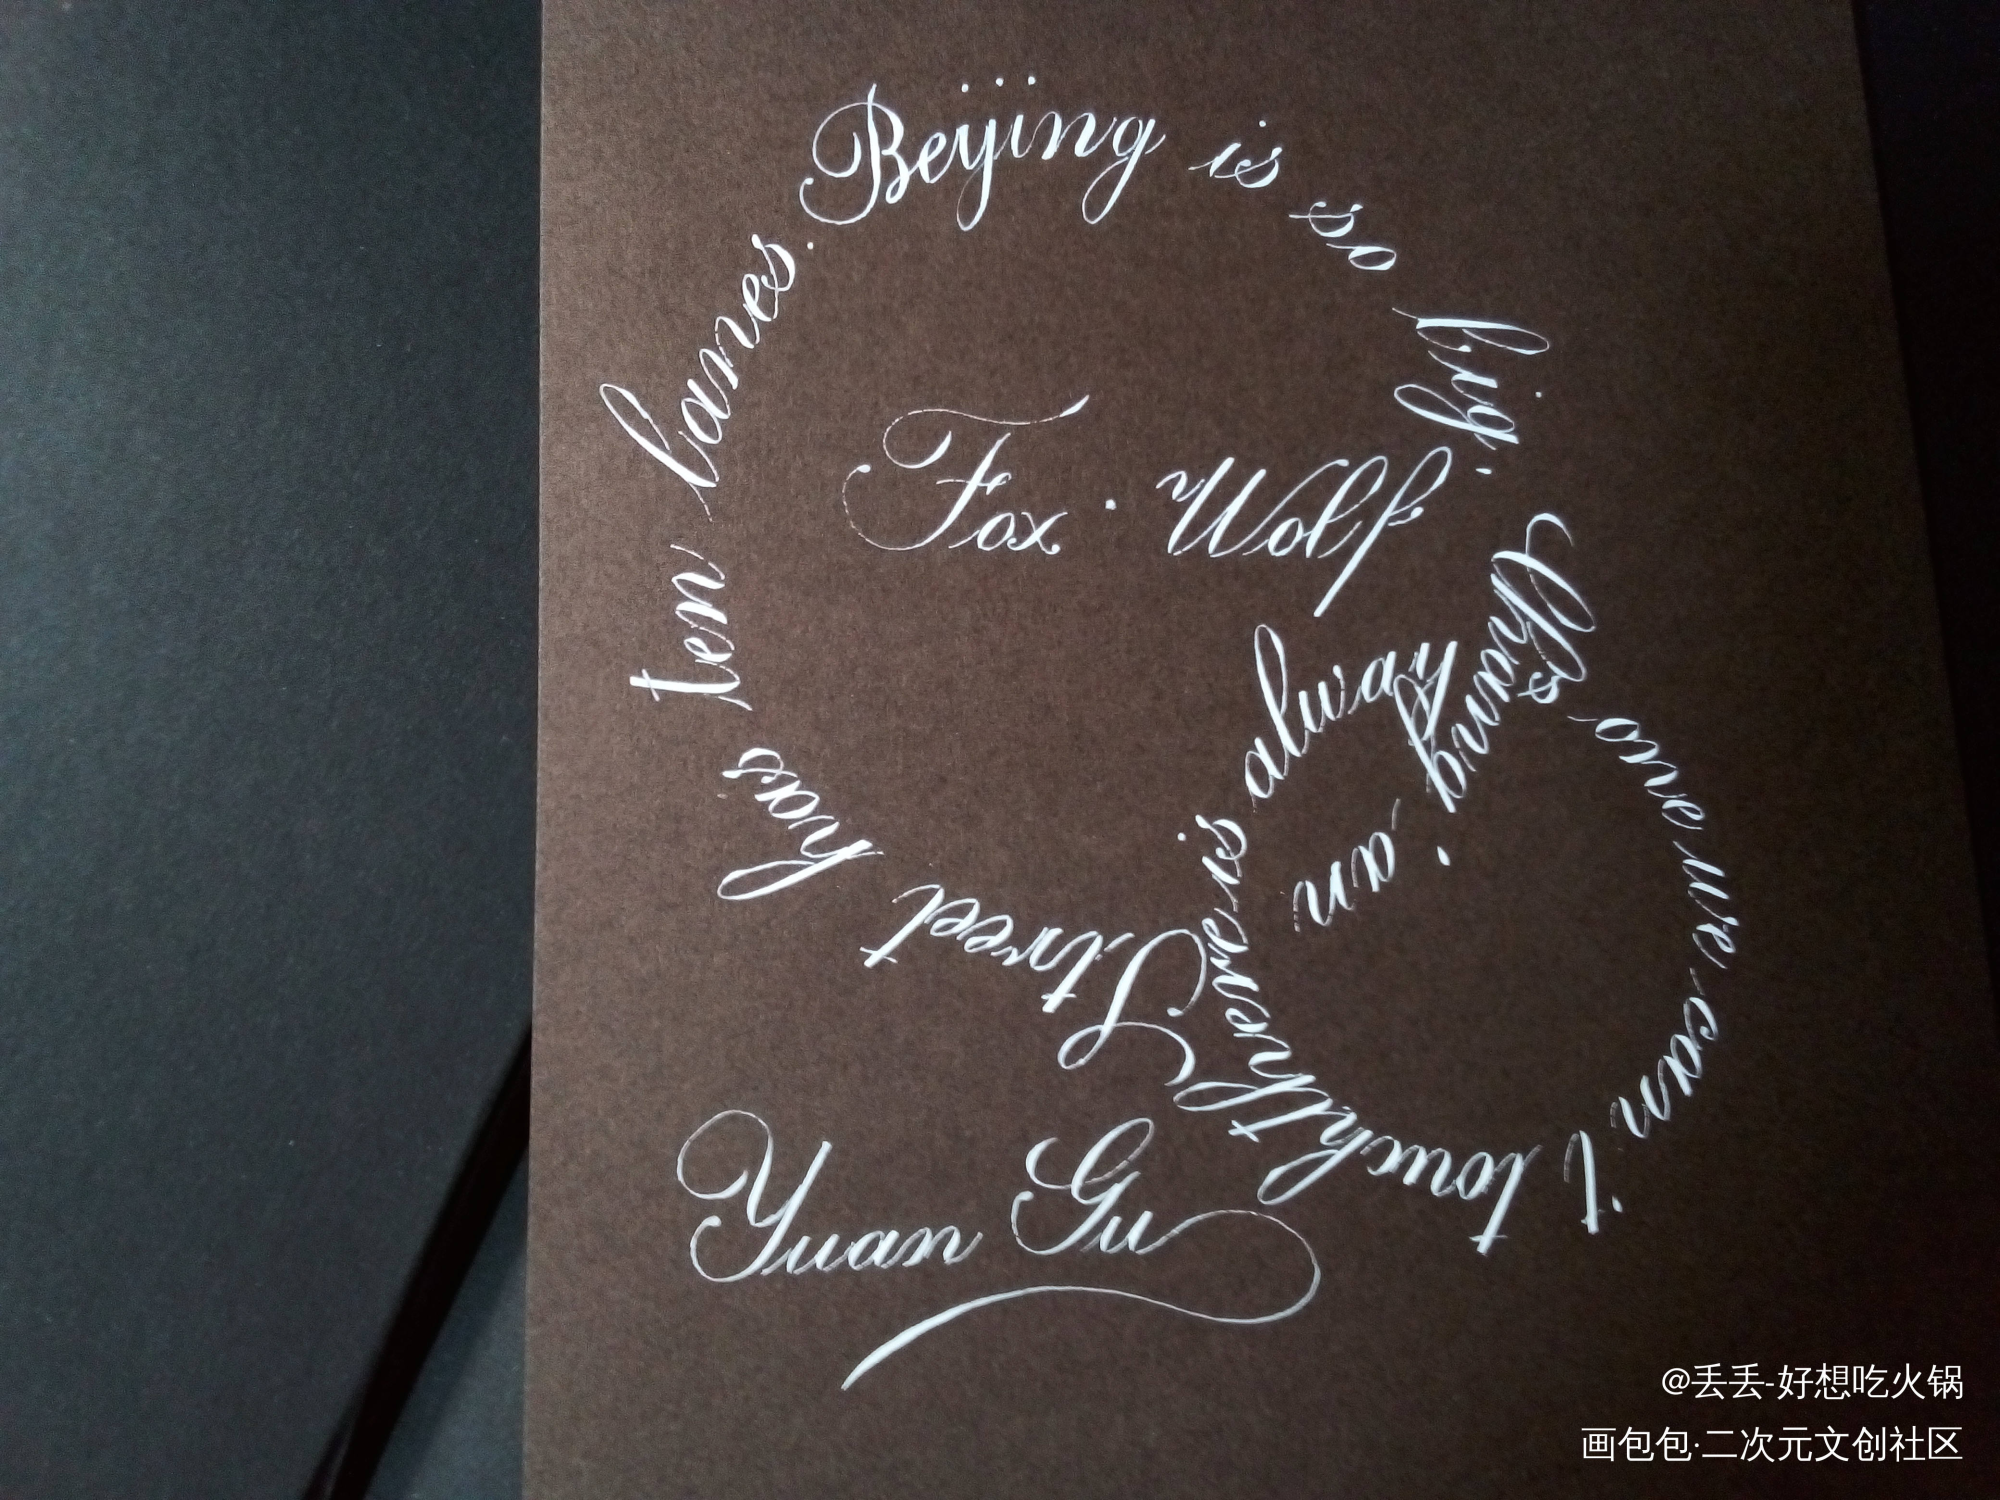 Beijing is so big, Chang'an Street has ten lanes.
Fox · Wolf
there is always one we can't touch
Yuan Gu
@丢丢-好想吃火锅
画包包·二次元文创社区